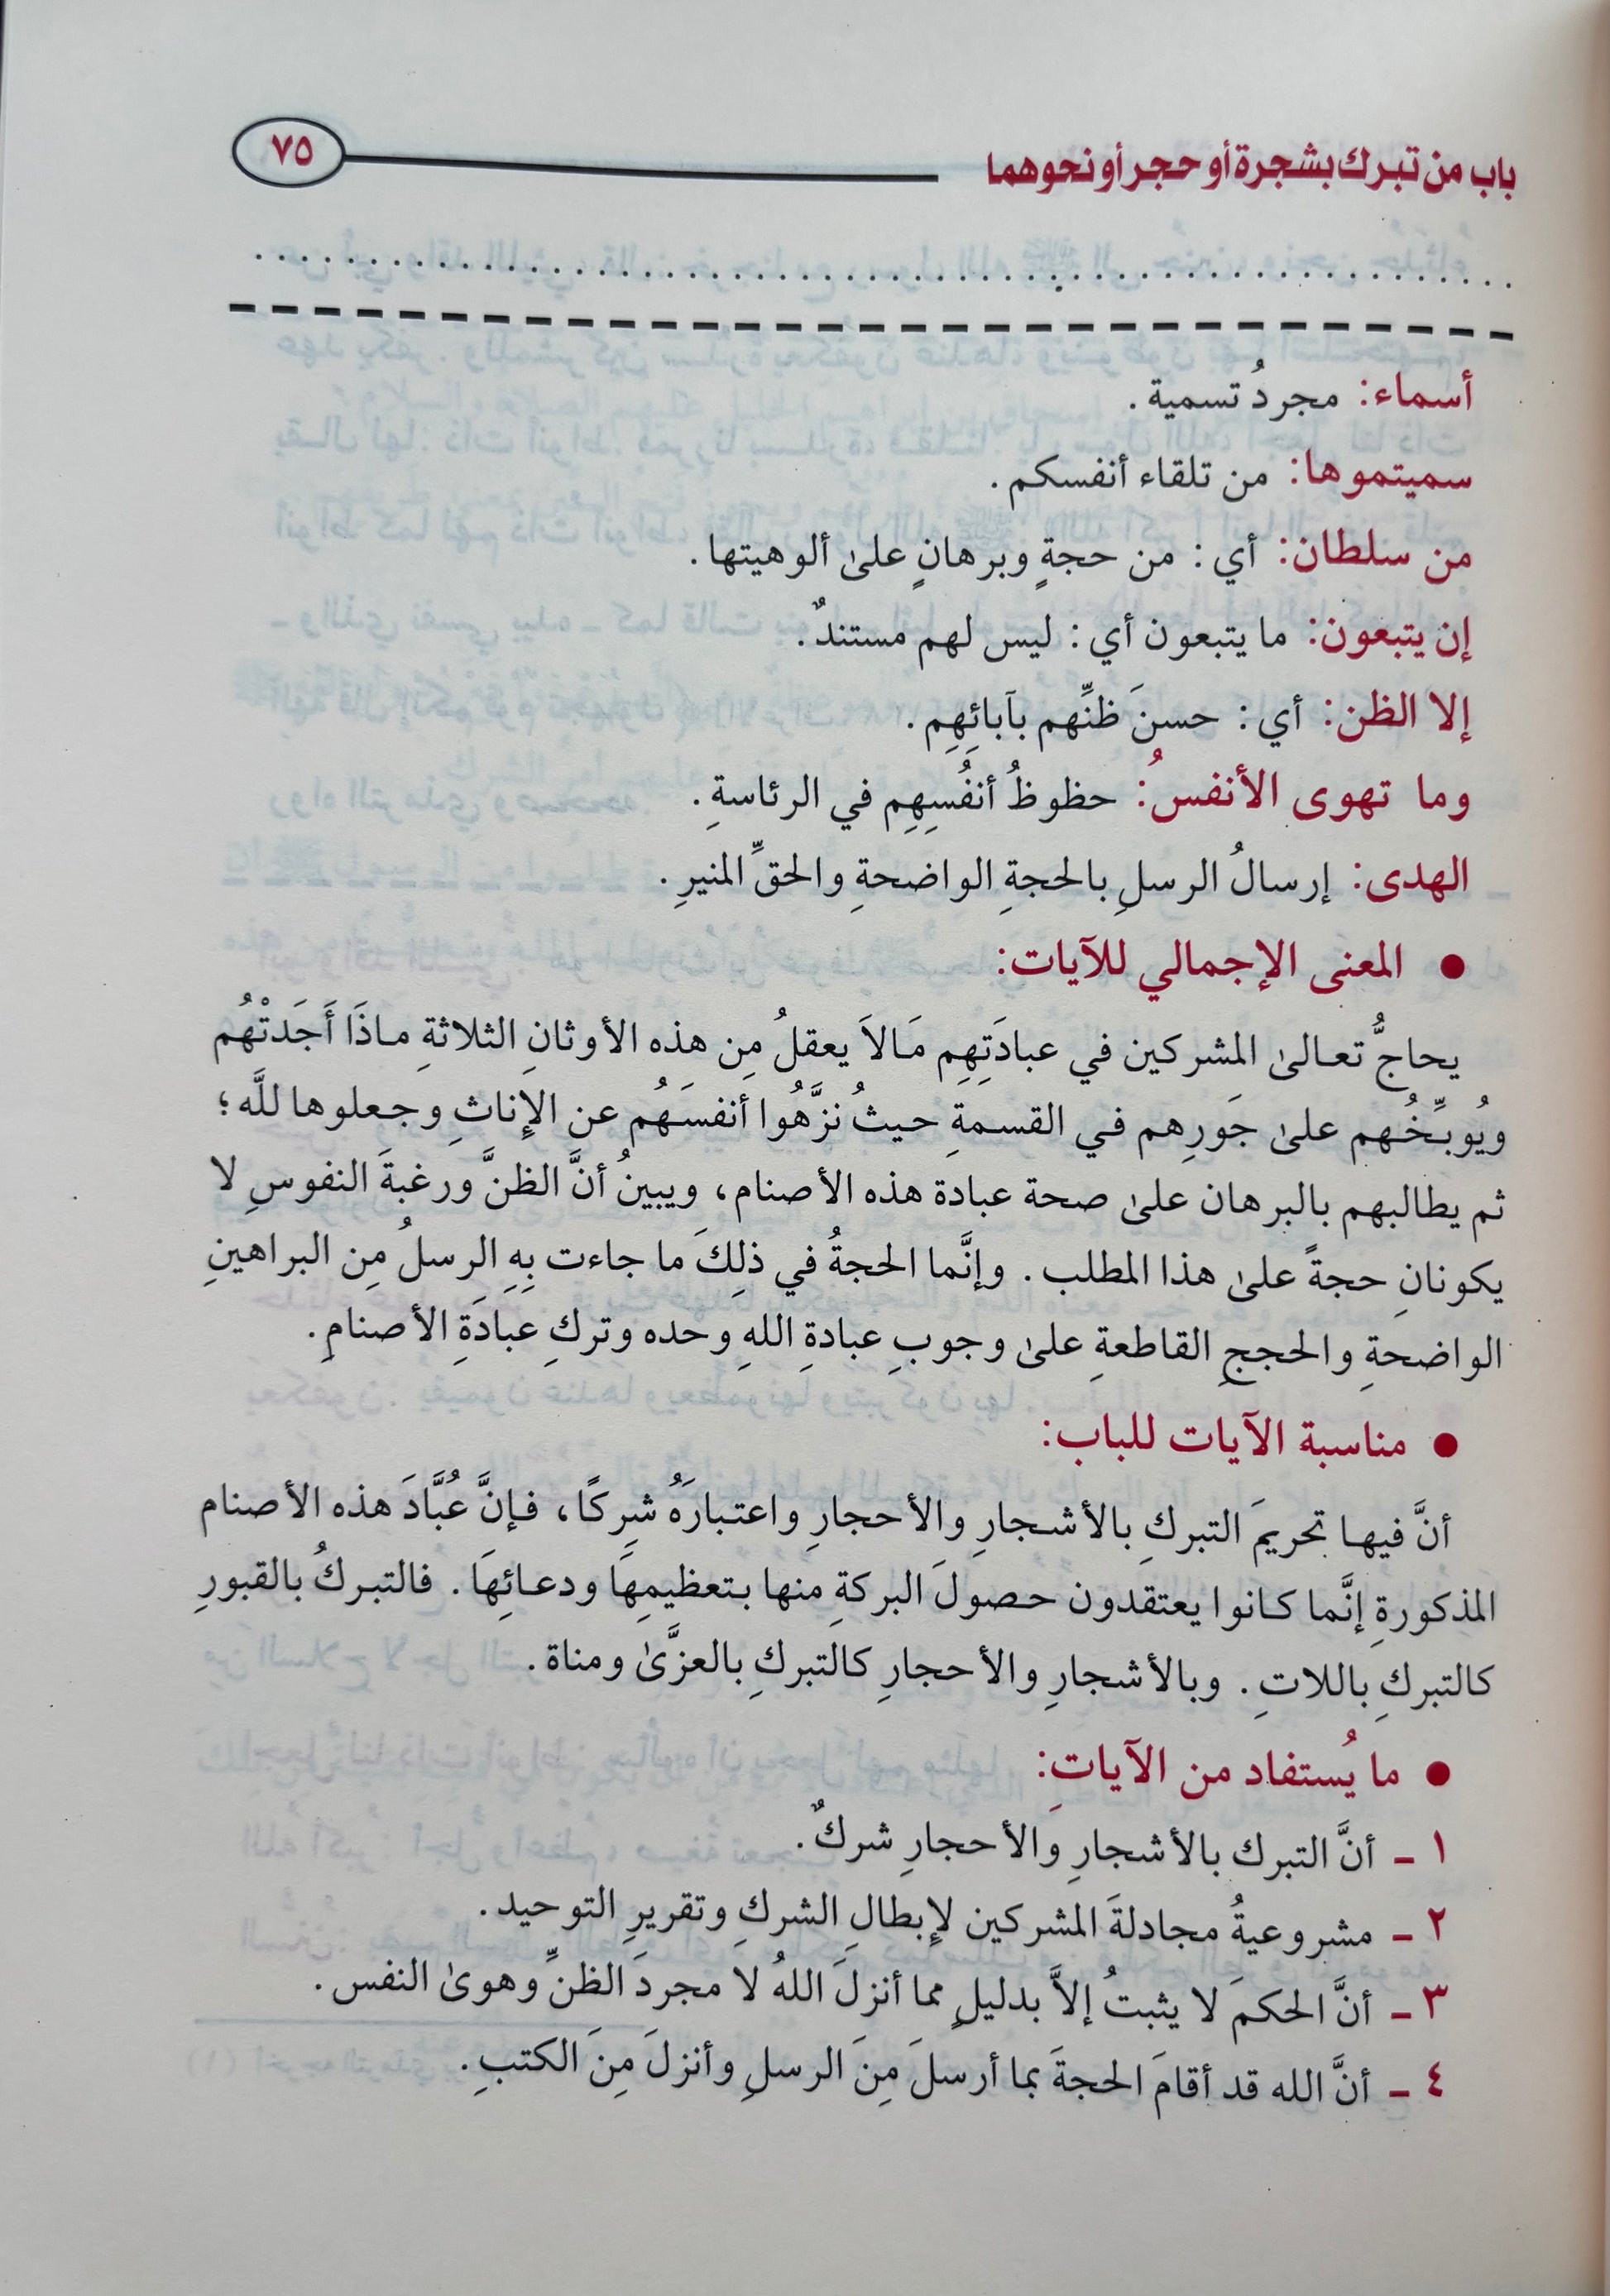 باب من تبرك بشجرة أو حجر أو نحوهما
٧٥
أسماء: مجردُ تسمية.
سميتموها: من تلقاء أنفسكم.
من سلطان: أي: من حجةٍ وبرهانٍ علىٰ ألوهيتها.
إن يتبعون: ما يتبعون أي: ليس لهم مستندٌ.
إلا الظن: أي: حسنَ ظنِّهم بآبائِهِم.
وما تهوى الأنفسُ: حظوظُ أنفُسِهِم في الرئاسةِ.
الهدى: إرسالُ الرسلِ بالحجةِ الواضحةِ والحقِّ المنيرِ.
● المعنى الإجمالي للآيات:
يحاجُّ تعالىٰ المشركين في عبادَتِهِم مَالاَ يعقلُ مِن هذه الأوثانِ الثلاثةِ ماذَا أَجَدتْهُم
ويُوبِّخُهم علىٰ جَورِهم في القسمةِ حيثُ نزَّهُوا أنفسَهُم عن الإناثِ وجعلوها للَّه؛
ثم يطالبهم بالبرهان علىٰ صحة عبادة هذه الأصنام، ويبينُ أنَّ الظنَّ ورغبةَ النفوسِ لا
يكونانِ حجةً علىٰ هذا المطلب. وإنَّما الحجةُ في ذلِكَ ما جاءت بِهِ الرسلُ مِن البراهينِ
الواضحةِ والحججِ القاطعةِ علىٰ وجوبِ عبادةِ اللهِ وحده وتركِ عبادَةِ الأصنامِ.
● مناسبة الآيات للباب:
أنَّ فيها تحريمَ التبركِ بالأشجارِ والأحجارِ واعتبارَهُ شِركًا، فإنَّ عُبَّادَ هذه الأصنام
المذكورةِ إنَّما كانوا يعتقدون حصولَ البركةِ منها بتعظيمِهَا ودعائِهَا. فالتبركُ بالقبورِ
كالتبركِ باللاتِ. وبالأشجارِ والأحجارِ كالتبركِ بالعزَّىٰ ومناة.
● ما يُستفاد من الآياتِ:
١ ـ أنَّ التبرك بالأشجارِ والأحجارِ شركٌ.
٢ ـ مشروعيةُ مجادلةَ المشركين لإبطالِ الشركِ وتقريرِ التوحيد.
٣ ـ أنَّ الحكمَ لا يثبتُ إلاَّ بدليلٍ مما أنزلَ اللهُ لا مجردَ الظنِّ وهوىٰ النفس.
٤ ـ أنَّ الله قد أقامَ الحجةَ بما أرسلَ مِنَ الرسلِ وأنزلَ مِنَ الكتبِ.